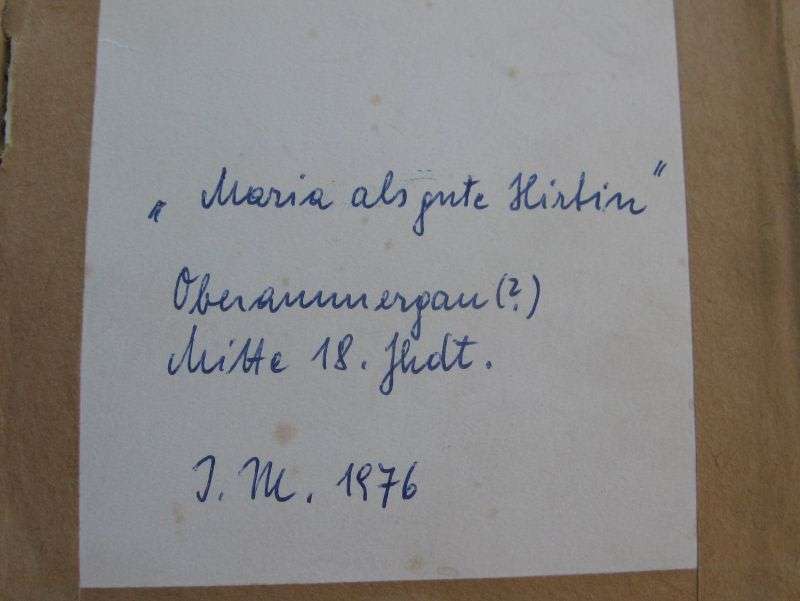 „Maria als gute Hirtin“
Oberammergau (?)
Mitte 18. Jhdt.
I. M. 1976